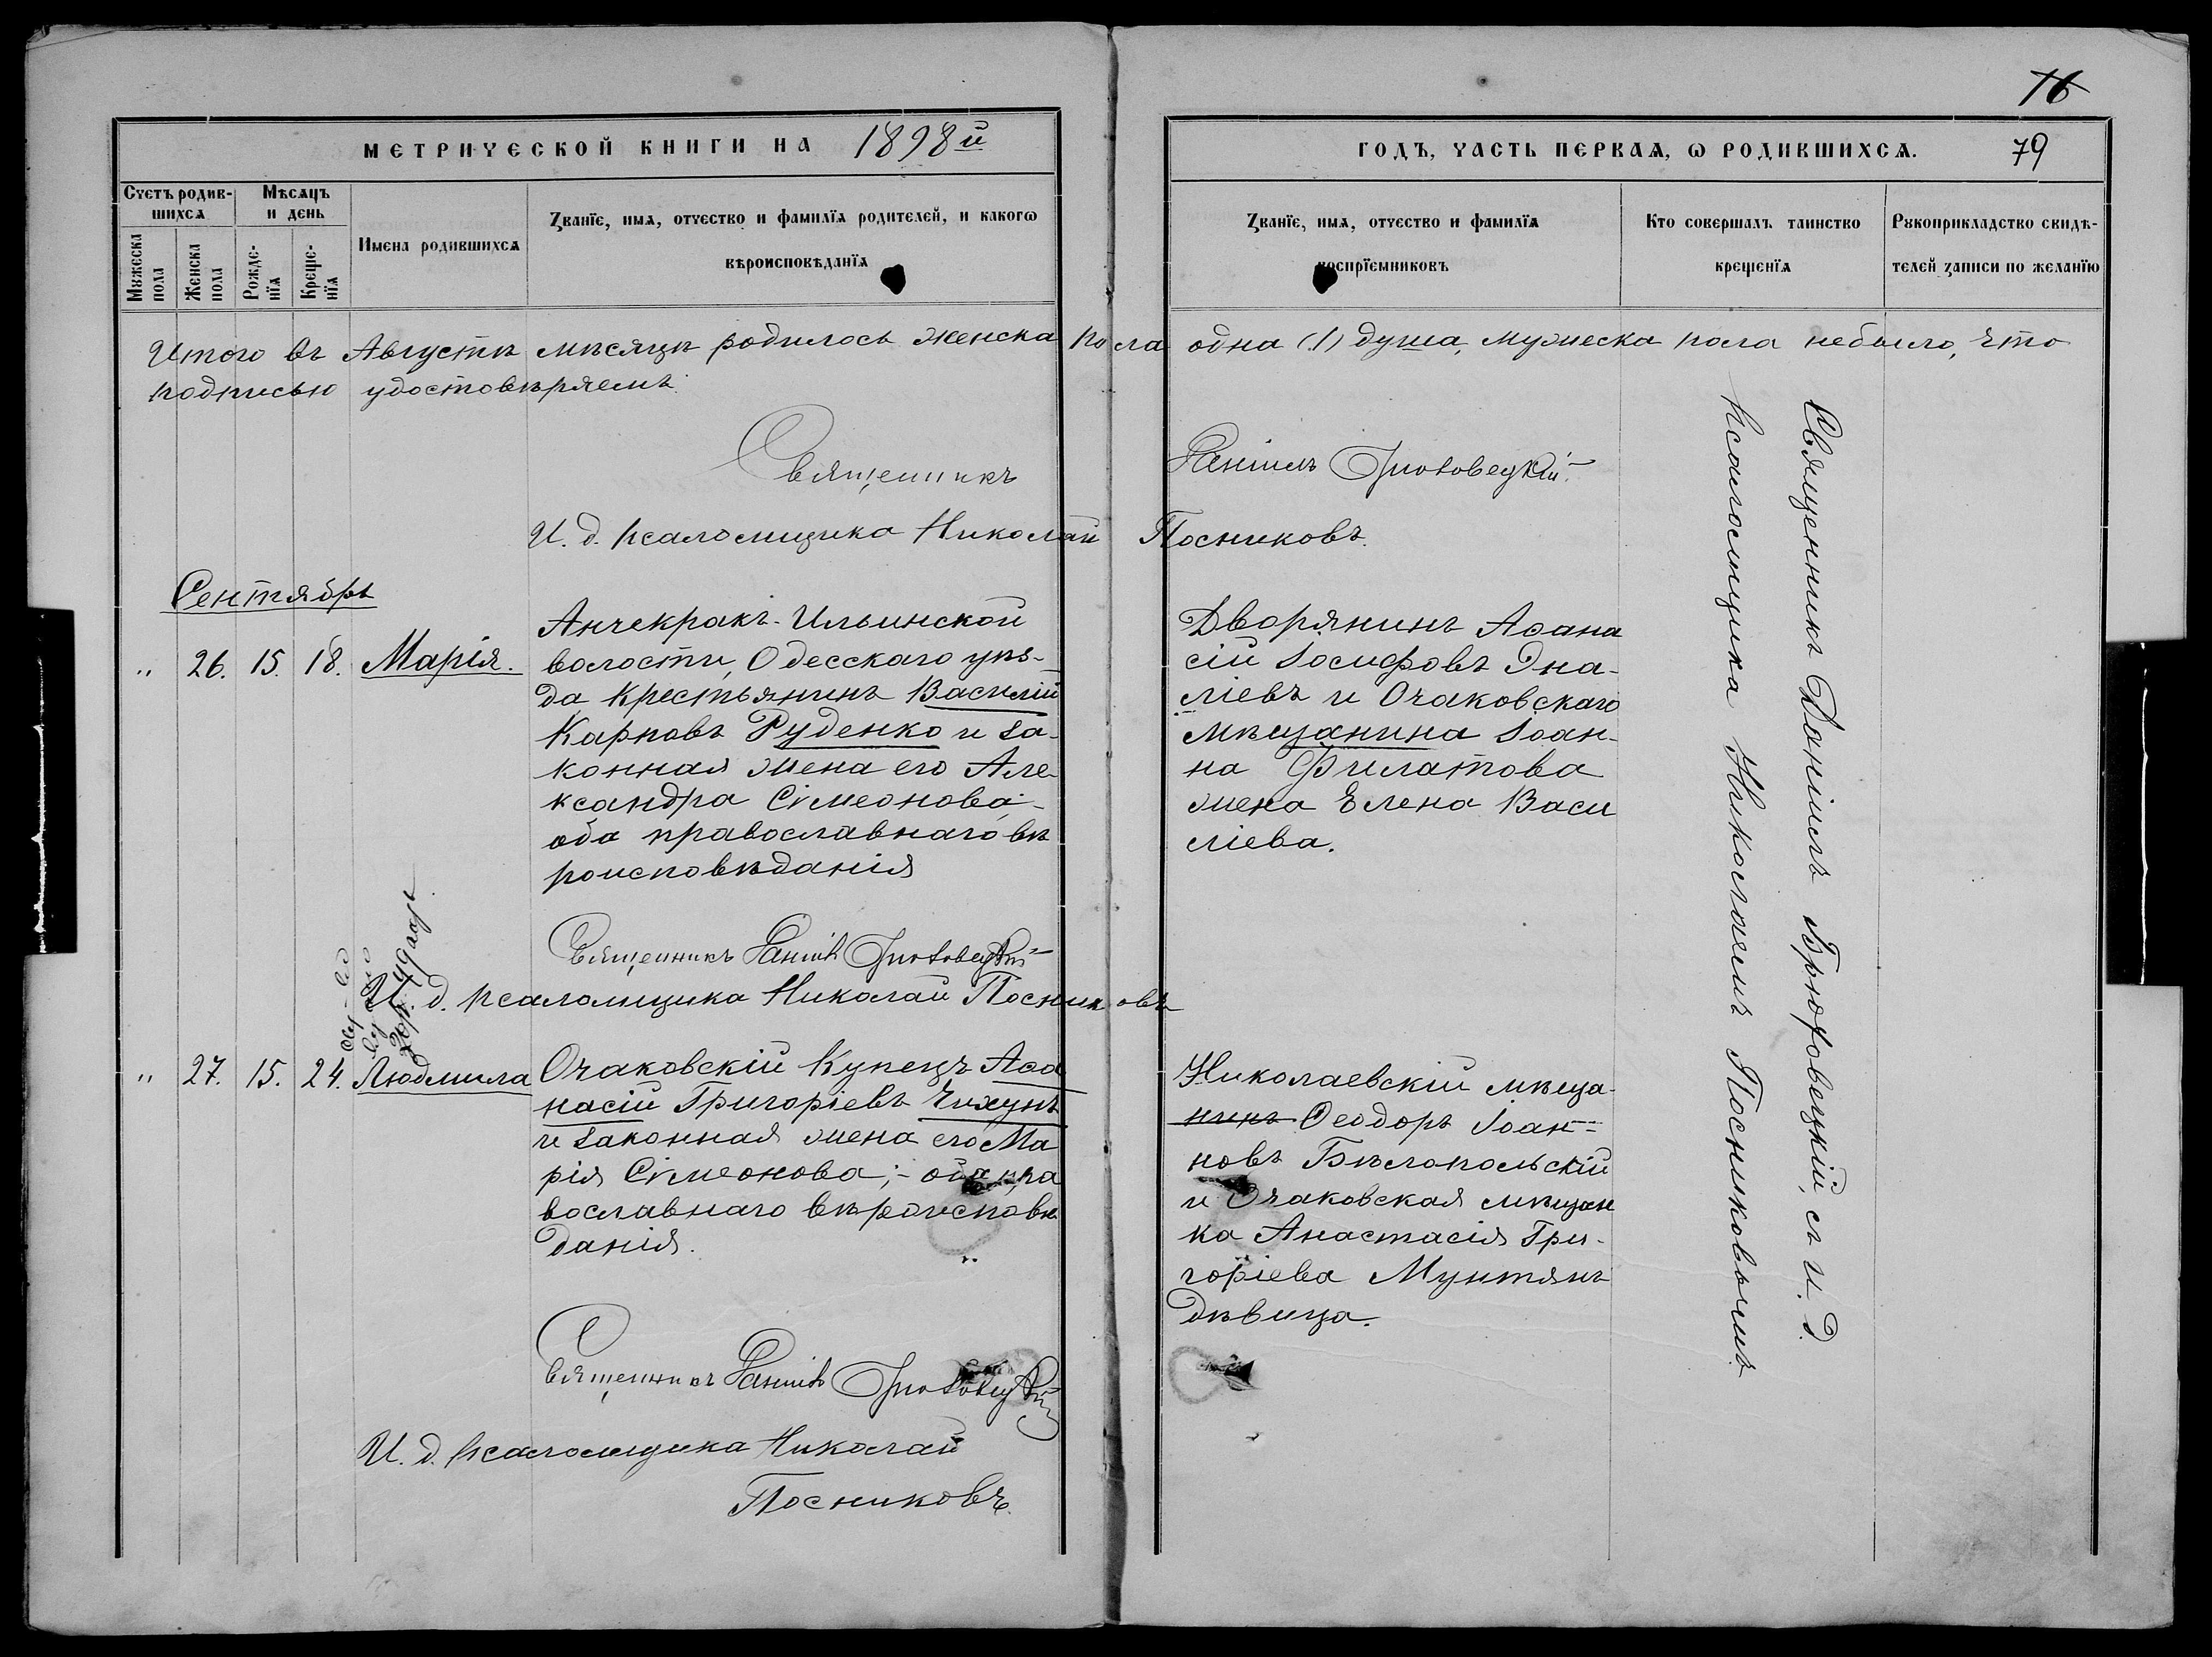 76
МЕТРИЧЕСКОЙ КНИГИ НА 1898й
ГОДЪ, ЧАСТЬ ПЕРВАЯ, Ѡ РОДИВШИХСЯ. 79
Счетъ родив-
шихся
Мѣсяцъ
и день
Мужеска
пола
Женска
пола
Рожде-
нія
Креще-
нія
Имена родившихся
Званїе, имя, отчество и фамилїя родителей, и какогѡ
вѣроисповѣданїя
Званїе, имя, отчество и фамилїя
воспрїемниковъ
Кто совершалъ таинство
крещенїя
Рукоприкладство свидѣ-
телей записи по желанїю
Итого въ Августѣ мѣсяцѣ родилось женска пола одна (1) душа, мужеска пола небыло, что
подписью удостовѣряемъ.
Священникъ Даніилъ Брютовецкій
И. д. псаломщика Николай Посниковъ.
Сентябрь
" 26. 15. 18. Марія.
Анчекракъ-Ильинской
волости, Одесскаго уѣз-
да крестьянинъ Василій
Карповъ Руденко и за-
конная жена его Але-
ксандра Сѵмеонова,-
оба православнаго вѣ
роисповѣданія
Дворянинъ Аѳана
сій Іосифовъ Эна-
ліевъ и Очаковскаго
мѣщанина Іоан-
на Филатова
жена Елена Васи
ліева.
Священникъ Даніилъ Брютовецкій
И. д. псаломщика Николай Посниковъ
" 27. 15. 24. Людмила
Очаковскій купецъ Аѳа
насій Григоріевъ Чихунъ
и законная жена его Ма
рія Сѵмеонова;- оба пра
вославнаго вѣроисповѣ
данія.
Николаевскій мѣща-
нинъ Ѳеодоръ Іоан=
новъ Бѣлопольскій
и Очаковская мѣщан
ка Анастасія Гри-
горіева Мунтянъ
дѣвица.
Священникъ Даніилъ Брютовецкій
И. д. псаломщика Николай
Посниковъ.
Священникъ Даніилъ Брютовецкій, съ и. д.
псаломщика Николаемъ Посниковымъ.